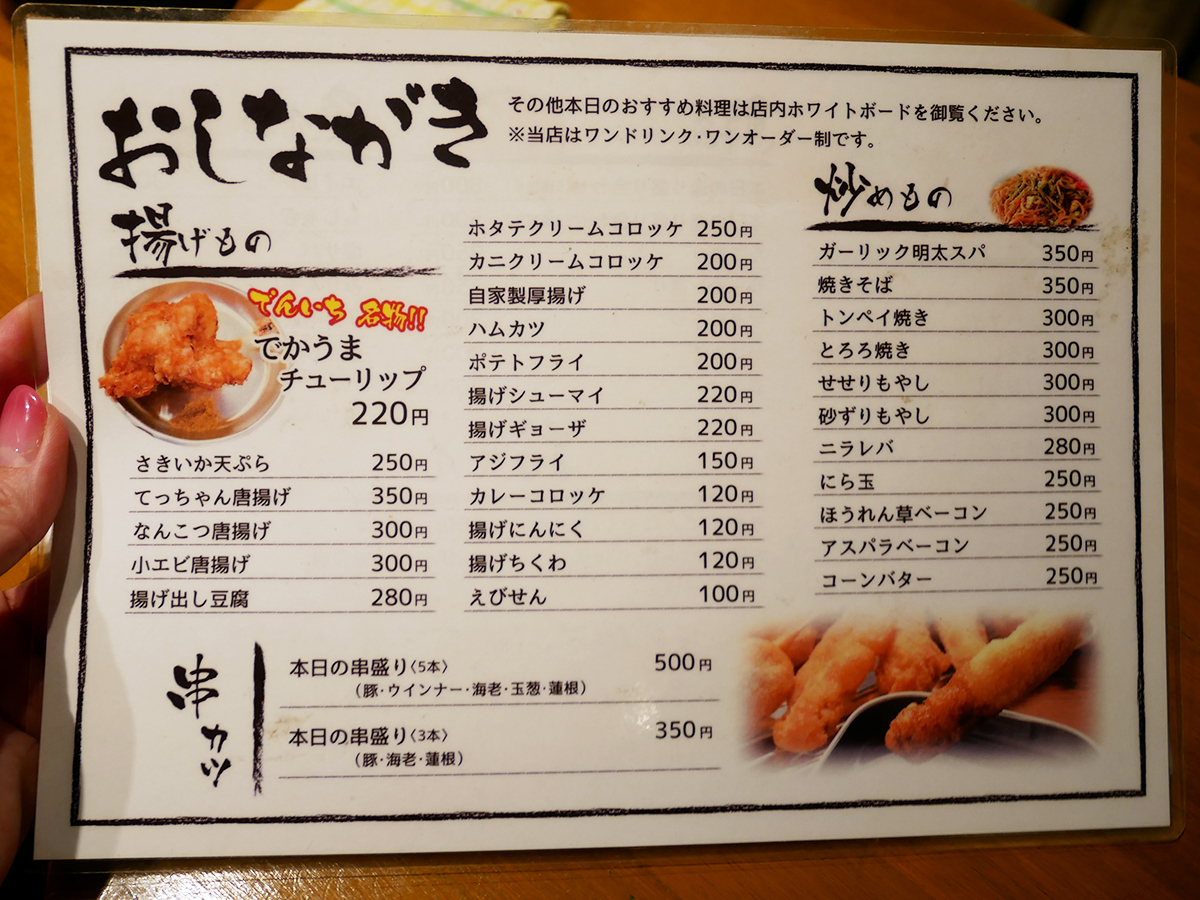 おしながき
その他本日のおすすめ料理は店内ホワイトボードを御覧ください。
※当店はワンドリンク・ワンオーダー制です。
揚げもの
でんいち 名物!!
でかうま
チューリップ
220円
さきいか天ぷら 250円
てっちゃん唐揚げ 350円
なんこつ唐揚げ 300円
小エビ唐揚げ 300円
揚げ出し豆腐 280円
ホタテクリームコロッケ 250円
カニクリームコロッケ 200円
自家製厚揚げ 200円
ハムカツ 200円
ポテトフライ 200円
揚げシューマイ 220円
揚げギョーザ 220円
アジフライ 150円
カレーコロッケ 120円
揚げにんにく 120円
揚げちくわ 120円
えびせん 100円
炒めもの
ガーリック明太スパ 350円
焼きそば 350円
トンペイ焼き 300円
とろろ焼き 300円
せせりもやし 300円
砂ずりもやし 300円
ニラレバ 280円
にら玉 250円
ほうれん草ベーコン 250円
アスパラベーコン 250円
コーンバター 250円
串カツ
本日の串盛り〈5本〉 500円
(豚・ウインナー・海老・玉葱・蓮根)
本日の串盛り〈3本〉 350円
(豚・海老・蓮根)